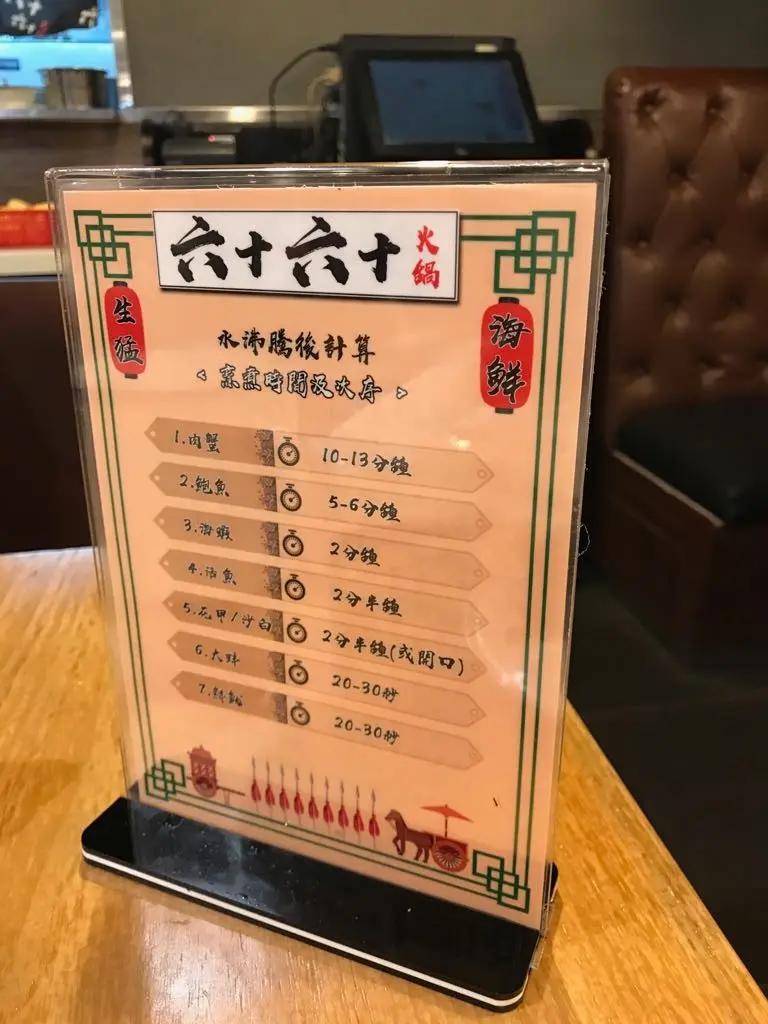 六十六十 火鍋
生猛
海鮮
水沸騰後計算
< 烹煮時間及次序 >
1.肉蟹 10-13分鐘
2.鮑魚 5-6分鐘
3.海蝦 2分鐘
4.活魚 2分半鐘
5.花甲/沙白 2分半鐘(或開口)
6.大蚌 20-30秒
7.鮮魷 20-30秒